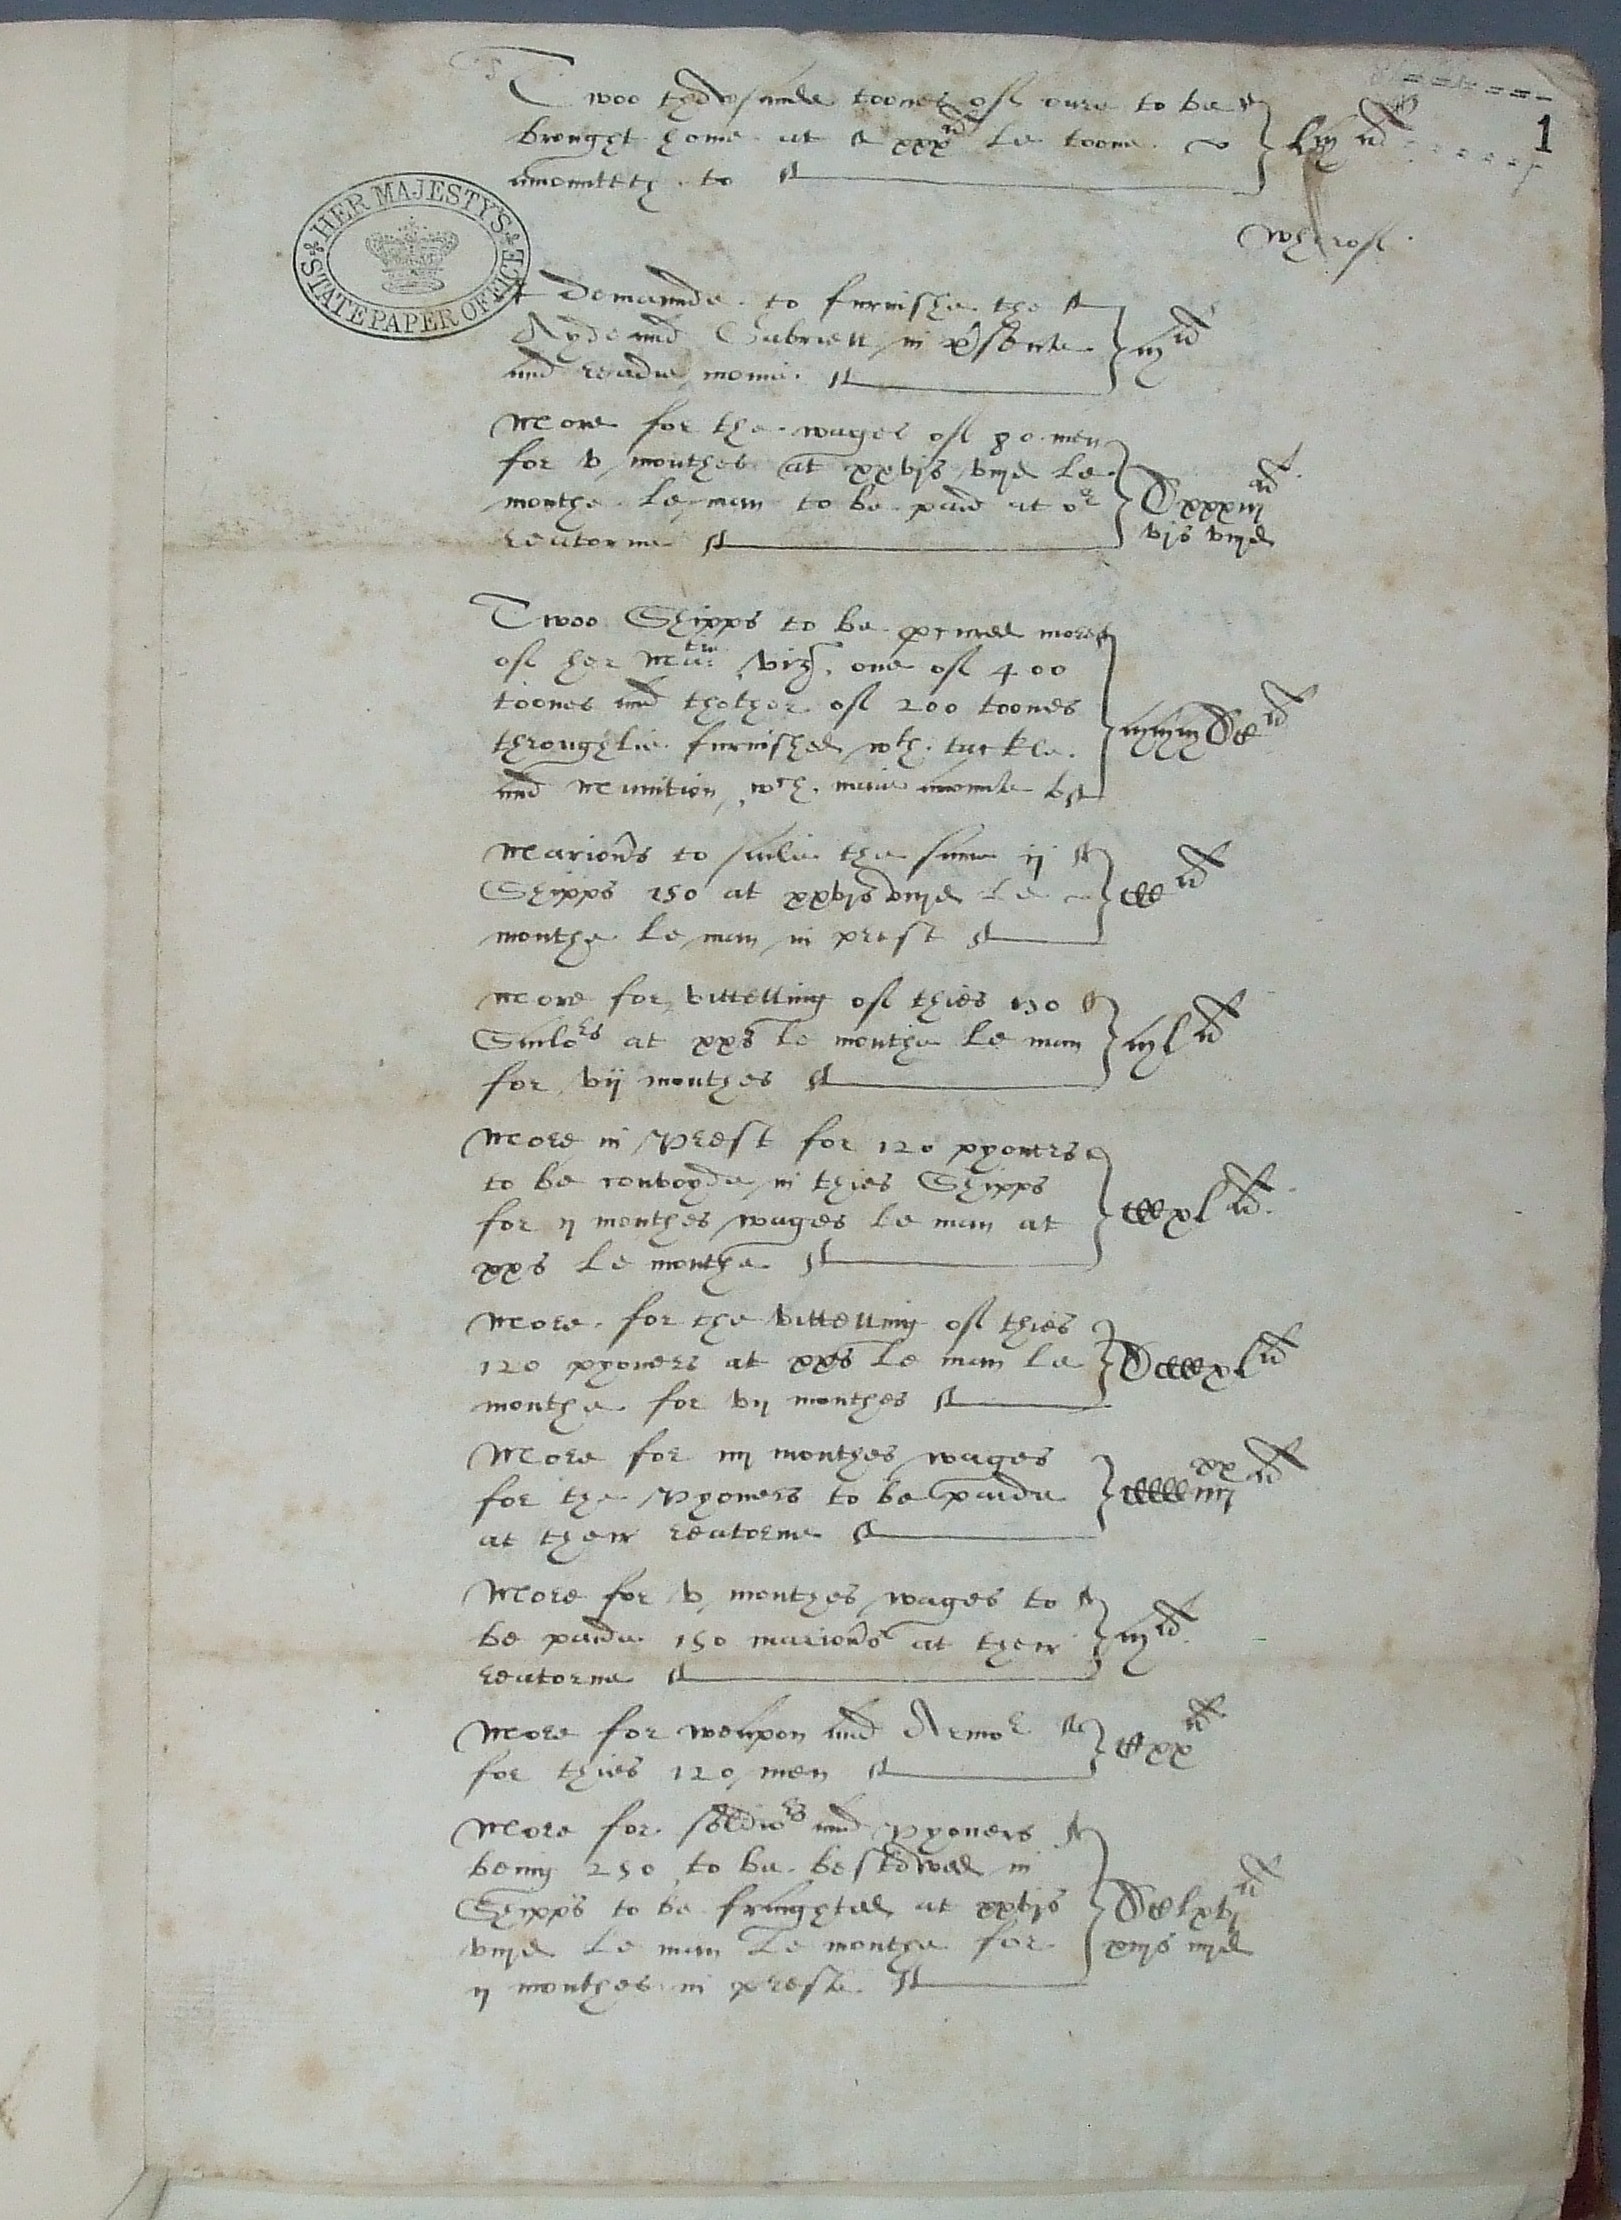 Twoo thowsande toones of oure to be
brought home at xxx li le toone
amounteth to
lx m li
1
Wherof
HER MAJESTY'S STATE PAPER OFFICE
I Demaunde to furnishe the
Ayde and Gabriell in p'sente
and readie monie
m li
More for the wages of 80 men
for v monthes at xxvjs viijd le
monthe le man to be paid at or
retorne
Dxxxiij li
vjs viijd
Twoo Shipps to be
of her Matie vizt. one of 400
toones and thother of 200 toones
throughlie furnished wth tackle
and Munition, wch maie amounte to
Marion's to saile the same ij
Shipps 150 at xxvjs viijd le
monthe le man in prest
CCC li
More for vittelling of thies 150
Sailors at xxs le monthe le man
for vij monthes
ml li
More in Prest for 120 pyoners
to be convoyde in thies Shipps
for ij monthes wages le man at
xxs le monthe
CCxl li
More for the vittelling of thies
120 pyoners at xxs le man le
monthe for vij monthes
DCCCxl li
More for iiij monthes wages
for the Pyoners to be paide
at their retorne
CCCC iiij xx li
More for v monthes wages to
be paide 150 marion's at their
retorne
m li
More for weapon and Armor
for thies 120 men
CCxx li
More for soldiors and Pyoners
being 250 to be bestowed in
Shipps to be fraughted at xxvjs
viijd le man le monthe for
ij monthes in preste
DClxvj li
xiijs iiijd